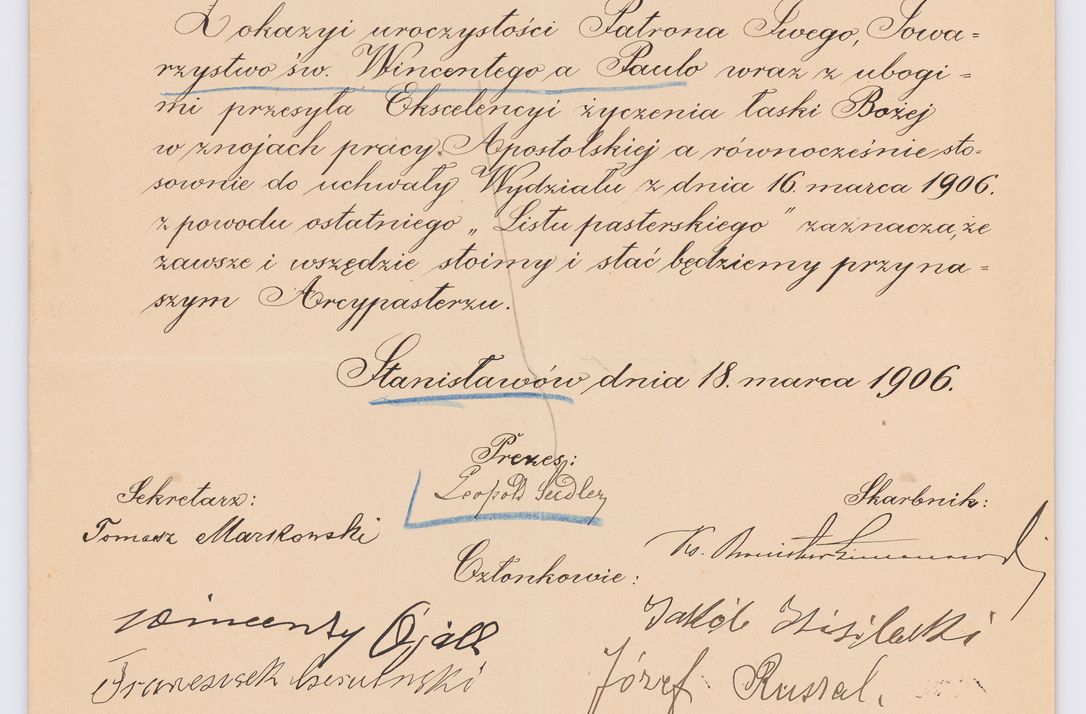 Z okazyi uroczystości Patrona Swego, Towa=
rzystwo św. Wincentego a Paulo wraz z ubogi=
mi przesyła Ekscelencyi życzenia łaski Bożej
w znojach pracy Apostolskiej a równocześnie sto=
sownie do uchwały Wydziału z dnia 16. marca 1906.
z powodu ostatniego „Listu pasterskiego" zaznacza, że
zawsze i wszędzie stoimy i stać będziemy przy na=
szym Arcypasterzu.
Stanisławów dnia 18. marca 1906.
Prezes:
Leopold Seidler
Sekretarz:
Tomasz Markowski
Skarbnik:
Ks.
Członkowie:
Wincenty
Jakób
Franciszek
Józef